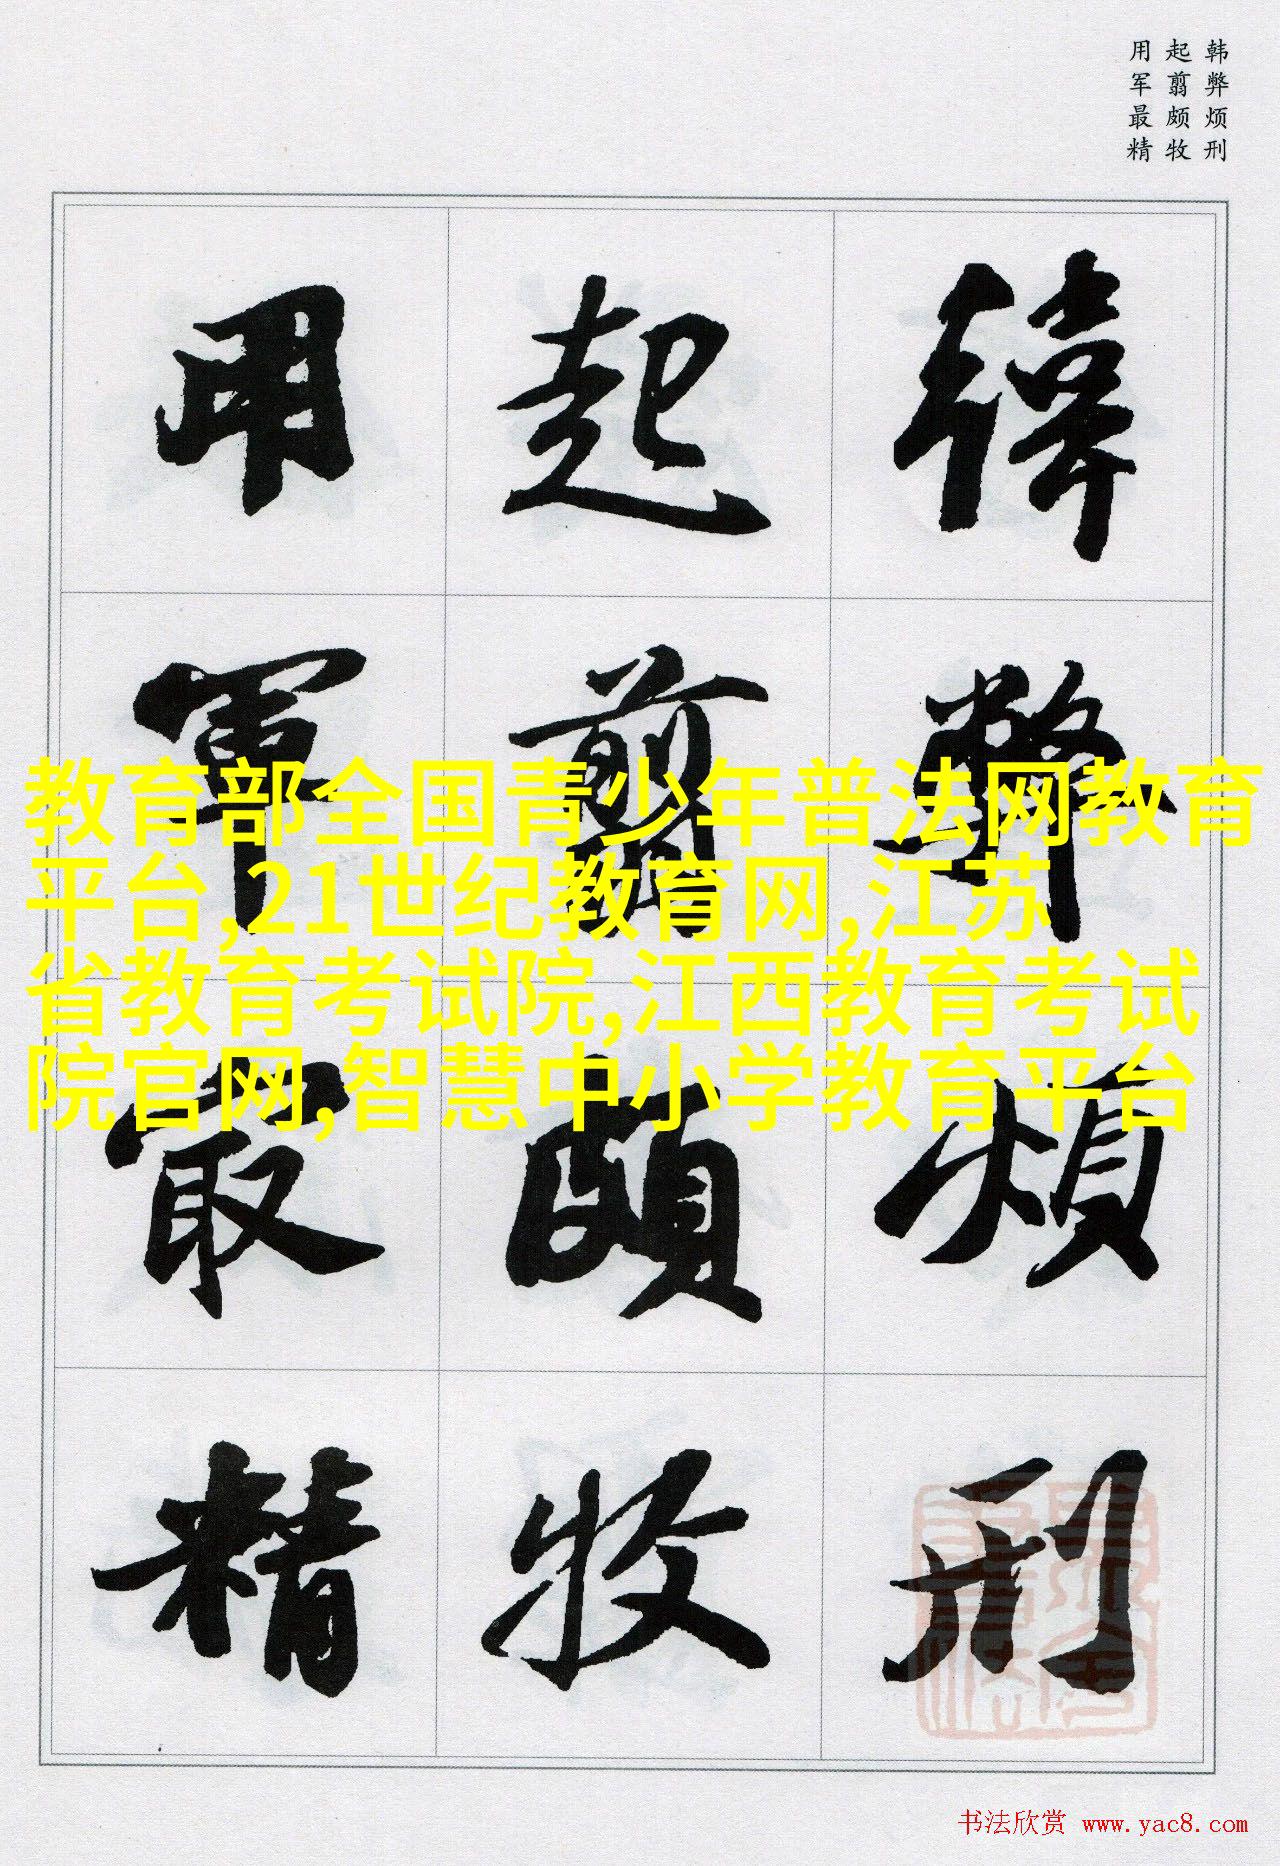 韩弊烦刑
起翦颇牧
用军最精
韓弊煩刑
起翦頗牧
用軍最精
教育部全国青少年普法网教育
平台,21世纪教育网,江苏
省教育考试院,江西教育考试
院官网,智慧中小学教育平台
书法欣赏 www.yac8.com